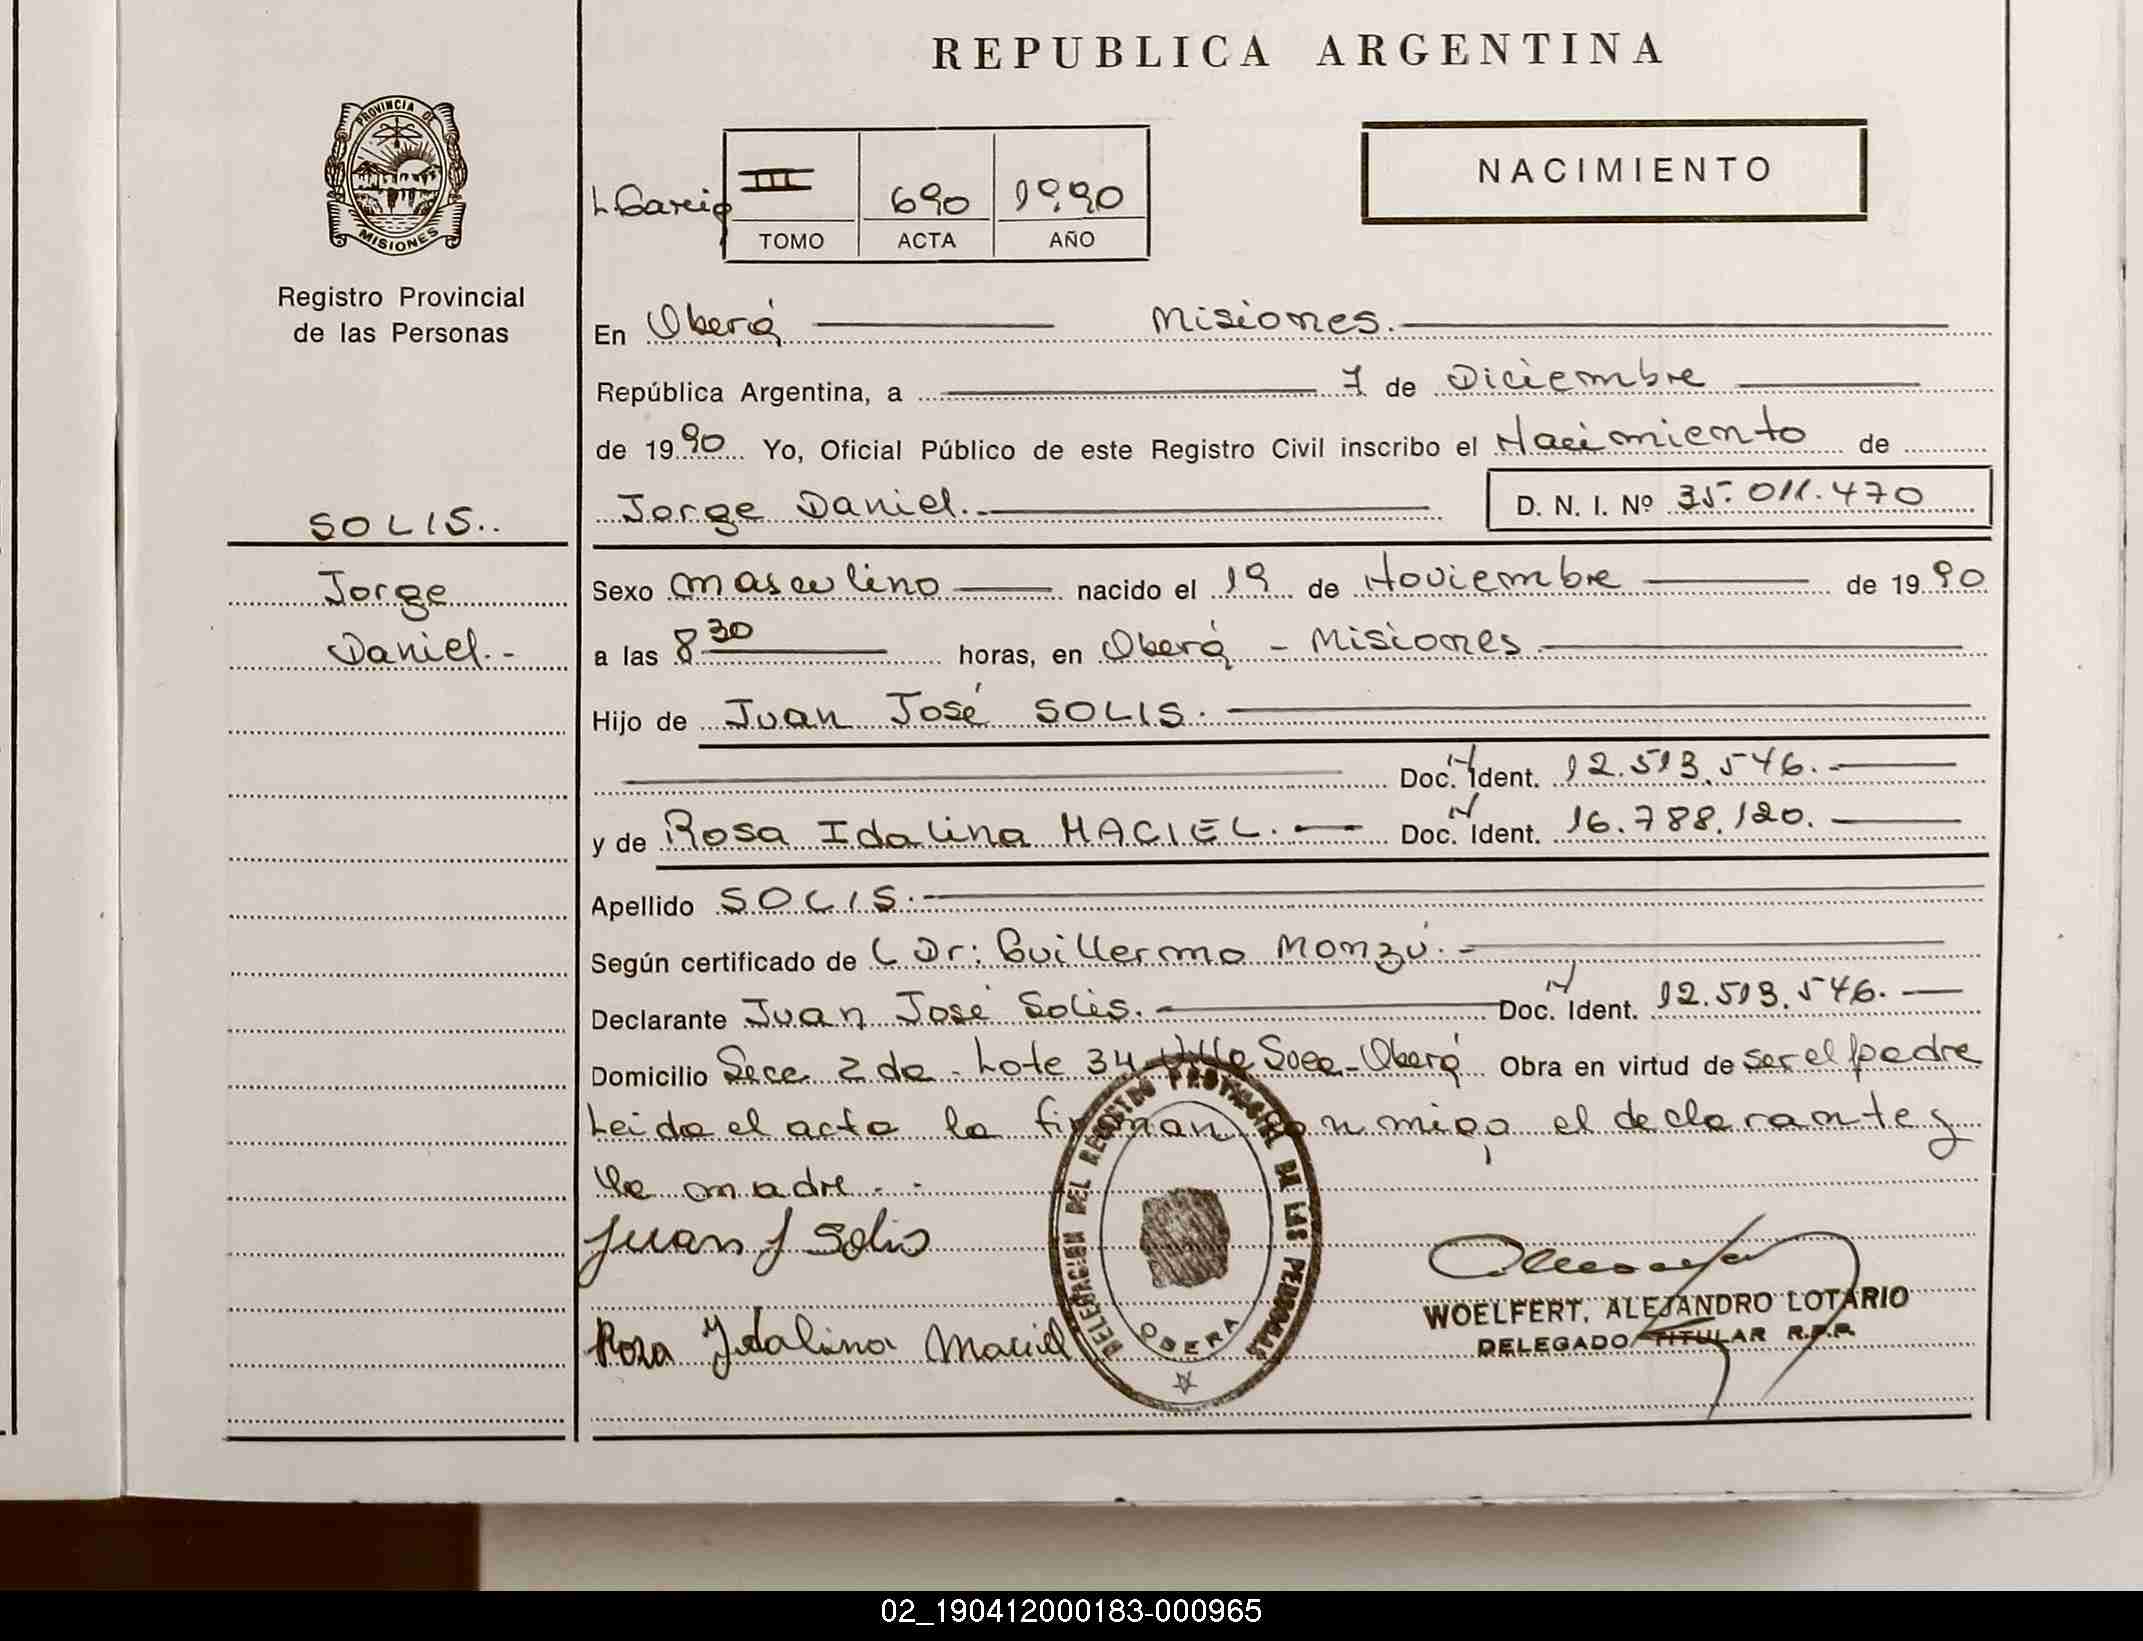 REPUBLICA ARGENTINA
PROVINCIA DE
MISIONES
Registro Provincial
de las Personas
NACIMIENTO
III 690 1990
TOMO ACTA AÑO
En Oberá Misiones.
República Argentina, a 7 de Diciembre
de 1990 Yo, Oficial Público de este Registro Civil inscribo el Nacimiento de
Jorge Daniel. D. N. I. Nº 35.011.470
SOLIS..
Jorge
Daniel.-
Sexo masculino nacido el 19 de Noviembre de 1990
a las 8 30 horas, en Oberá - Misiones
Hijo de Juan José SOLIS.
Doc. Ident. 12.513.546.
y de Rosa Idalina MACIEL. Doc. Ident. 16.788.120.
Apellido SOLIS.
Según certificado de Dr: Guillermo Monzú.
Declarante Juan José Solis. Doc. Ident. 12.513.546.
Domicilio Secc. 2da - Lote 34 Villa - Oberá Obra en virtud de ser el padre
Leida el acta la firman conmigo el declarante y
la madre.
Juan J Solis
Rosa Ydalina Maciel
DELEGACION DEL REGISTRO PROVINCIAL DE LAS PERSONAS
OBERA
WOELFERT, ALEJANDRO LOTARIO
DELEGADO TITULAR R.P.P.
02_190412000183-000965